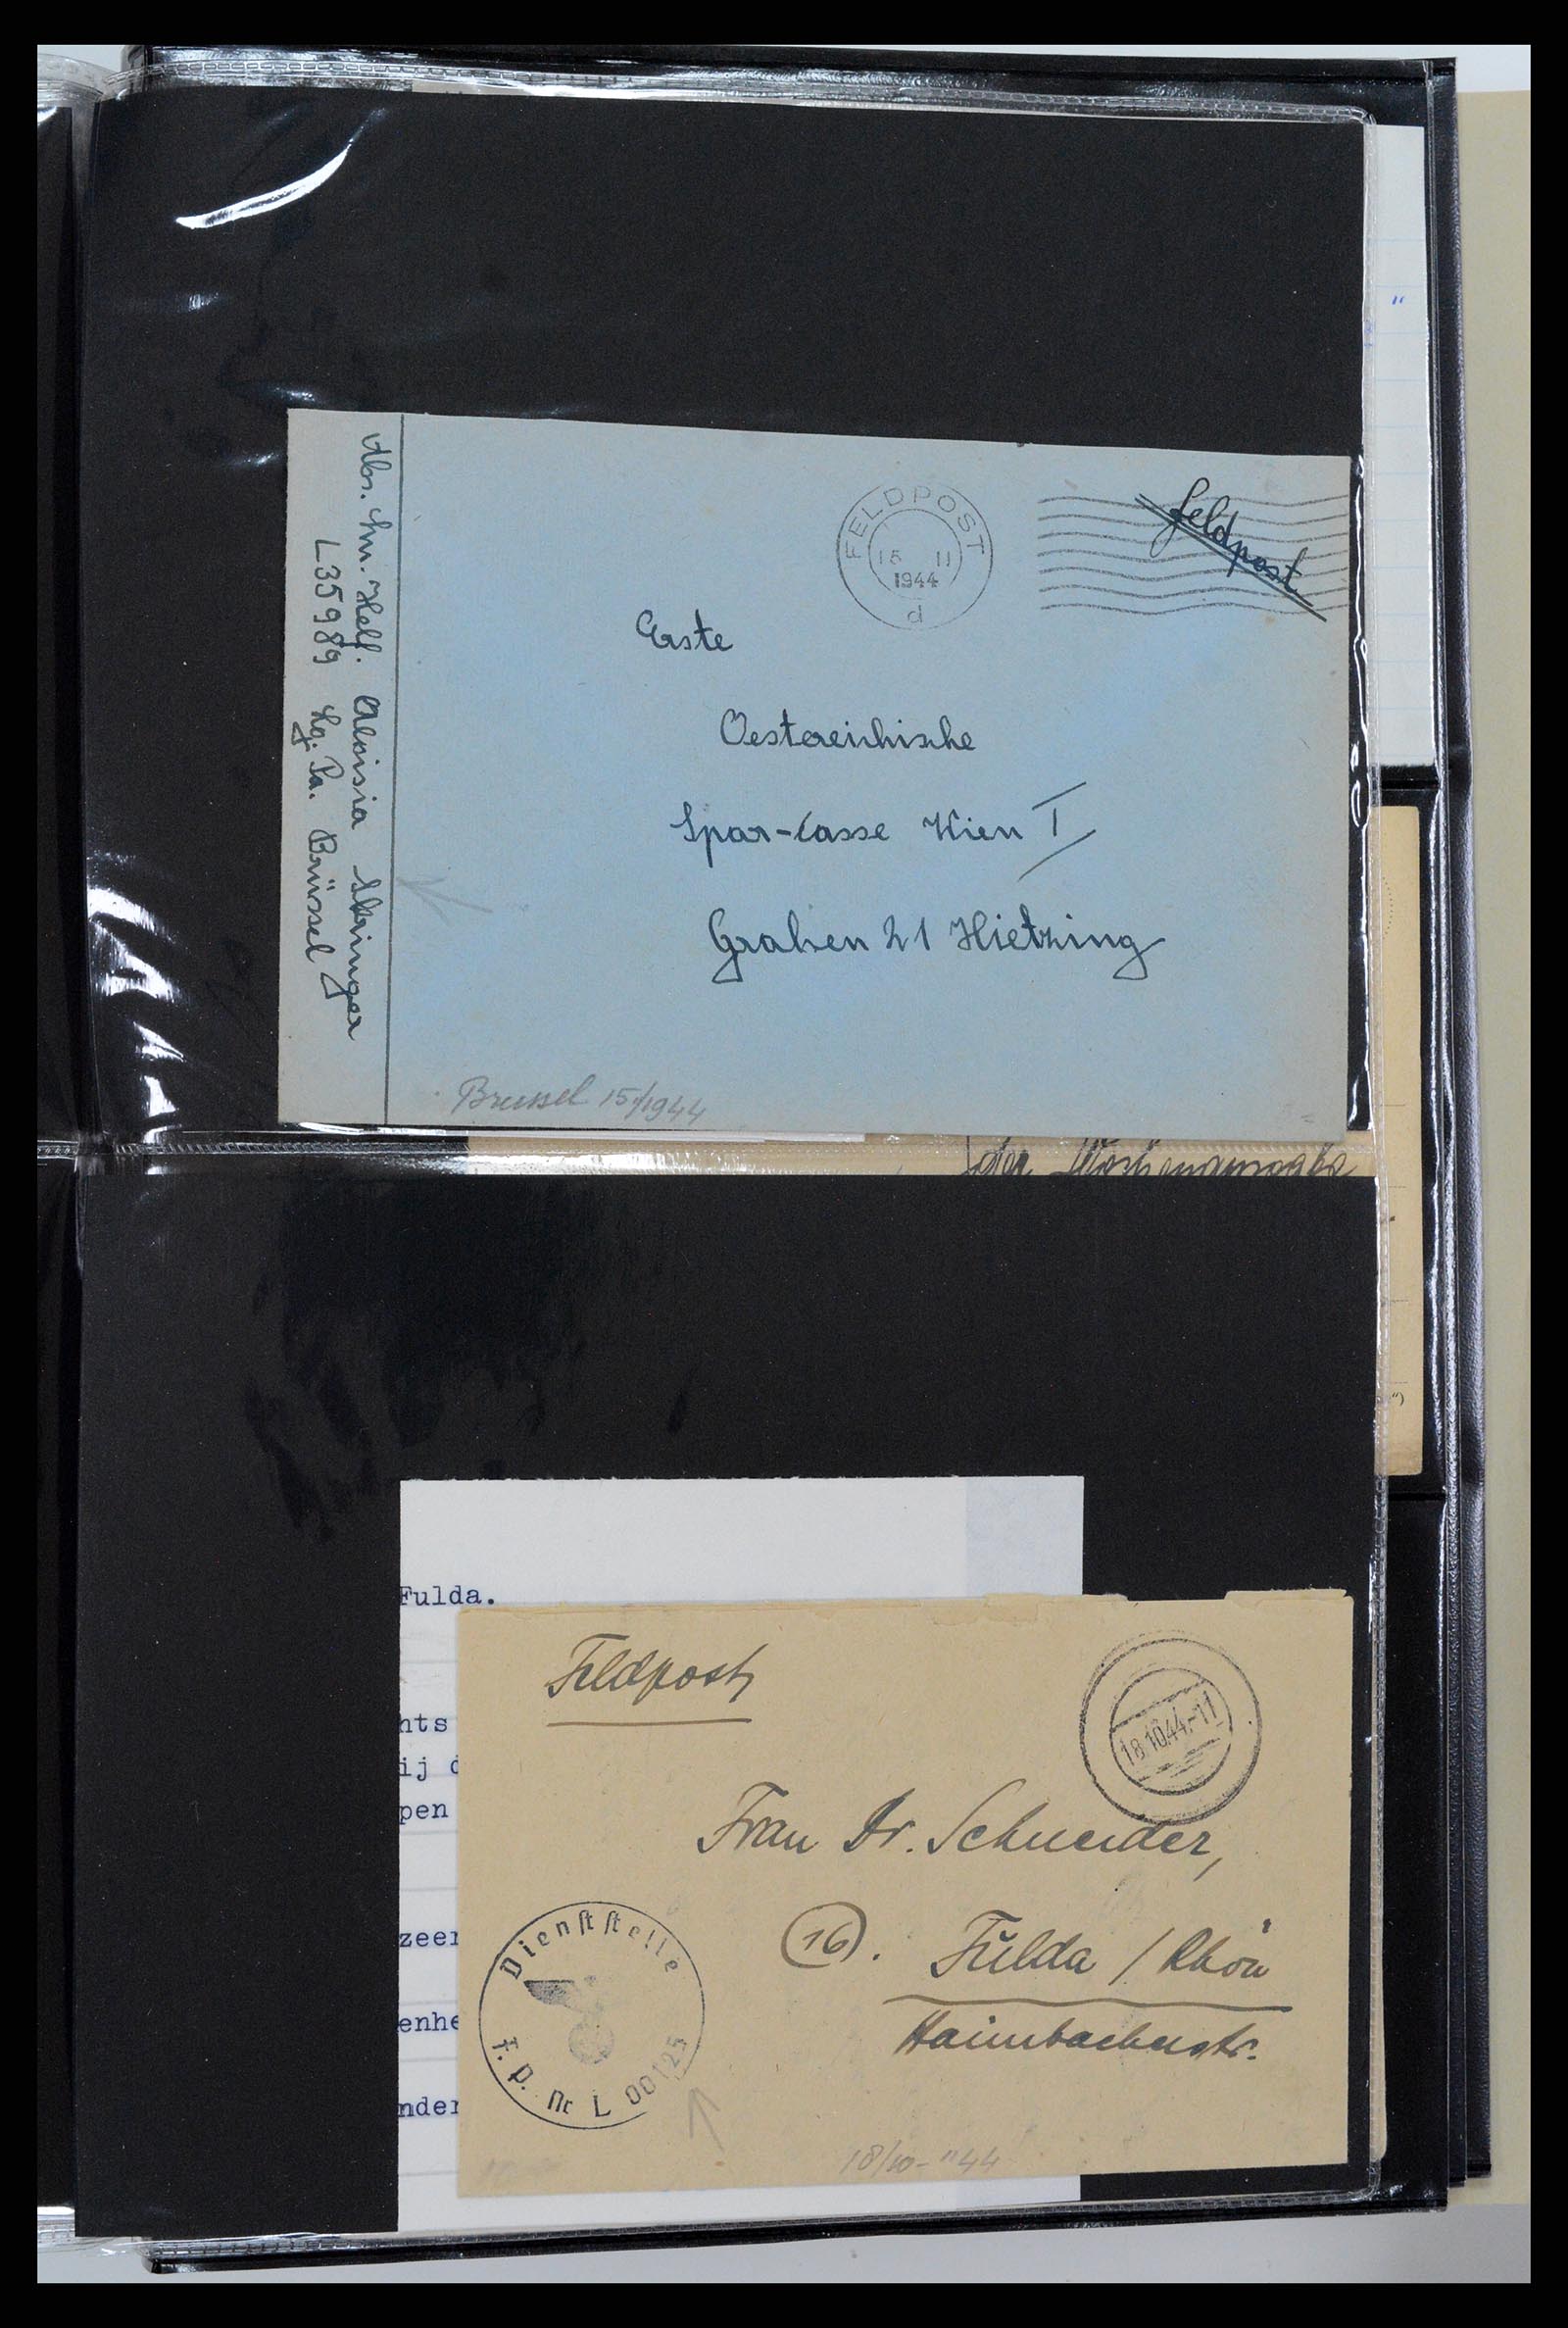 feldpost
FELDPOST
15 11
1944
d
Erste
Oestereichische
Spar-Casse Wien I
Graben 21 Hietzing
Abs. Ln. Helf. Aloisia Stringer
L35989 Lg. Pa. Brüssel
Brussel 15/1944
der
Fulda.
hts
ij d
pen
zeer
enhe
nder
Feldpost
18.10.44.-11
Frau Dr. Schneider,
(16). Fulda / Rhön
Haimbacherstr.
Dienststelle
F. P. Nr L 00125
18/10-"44